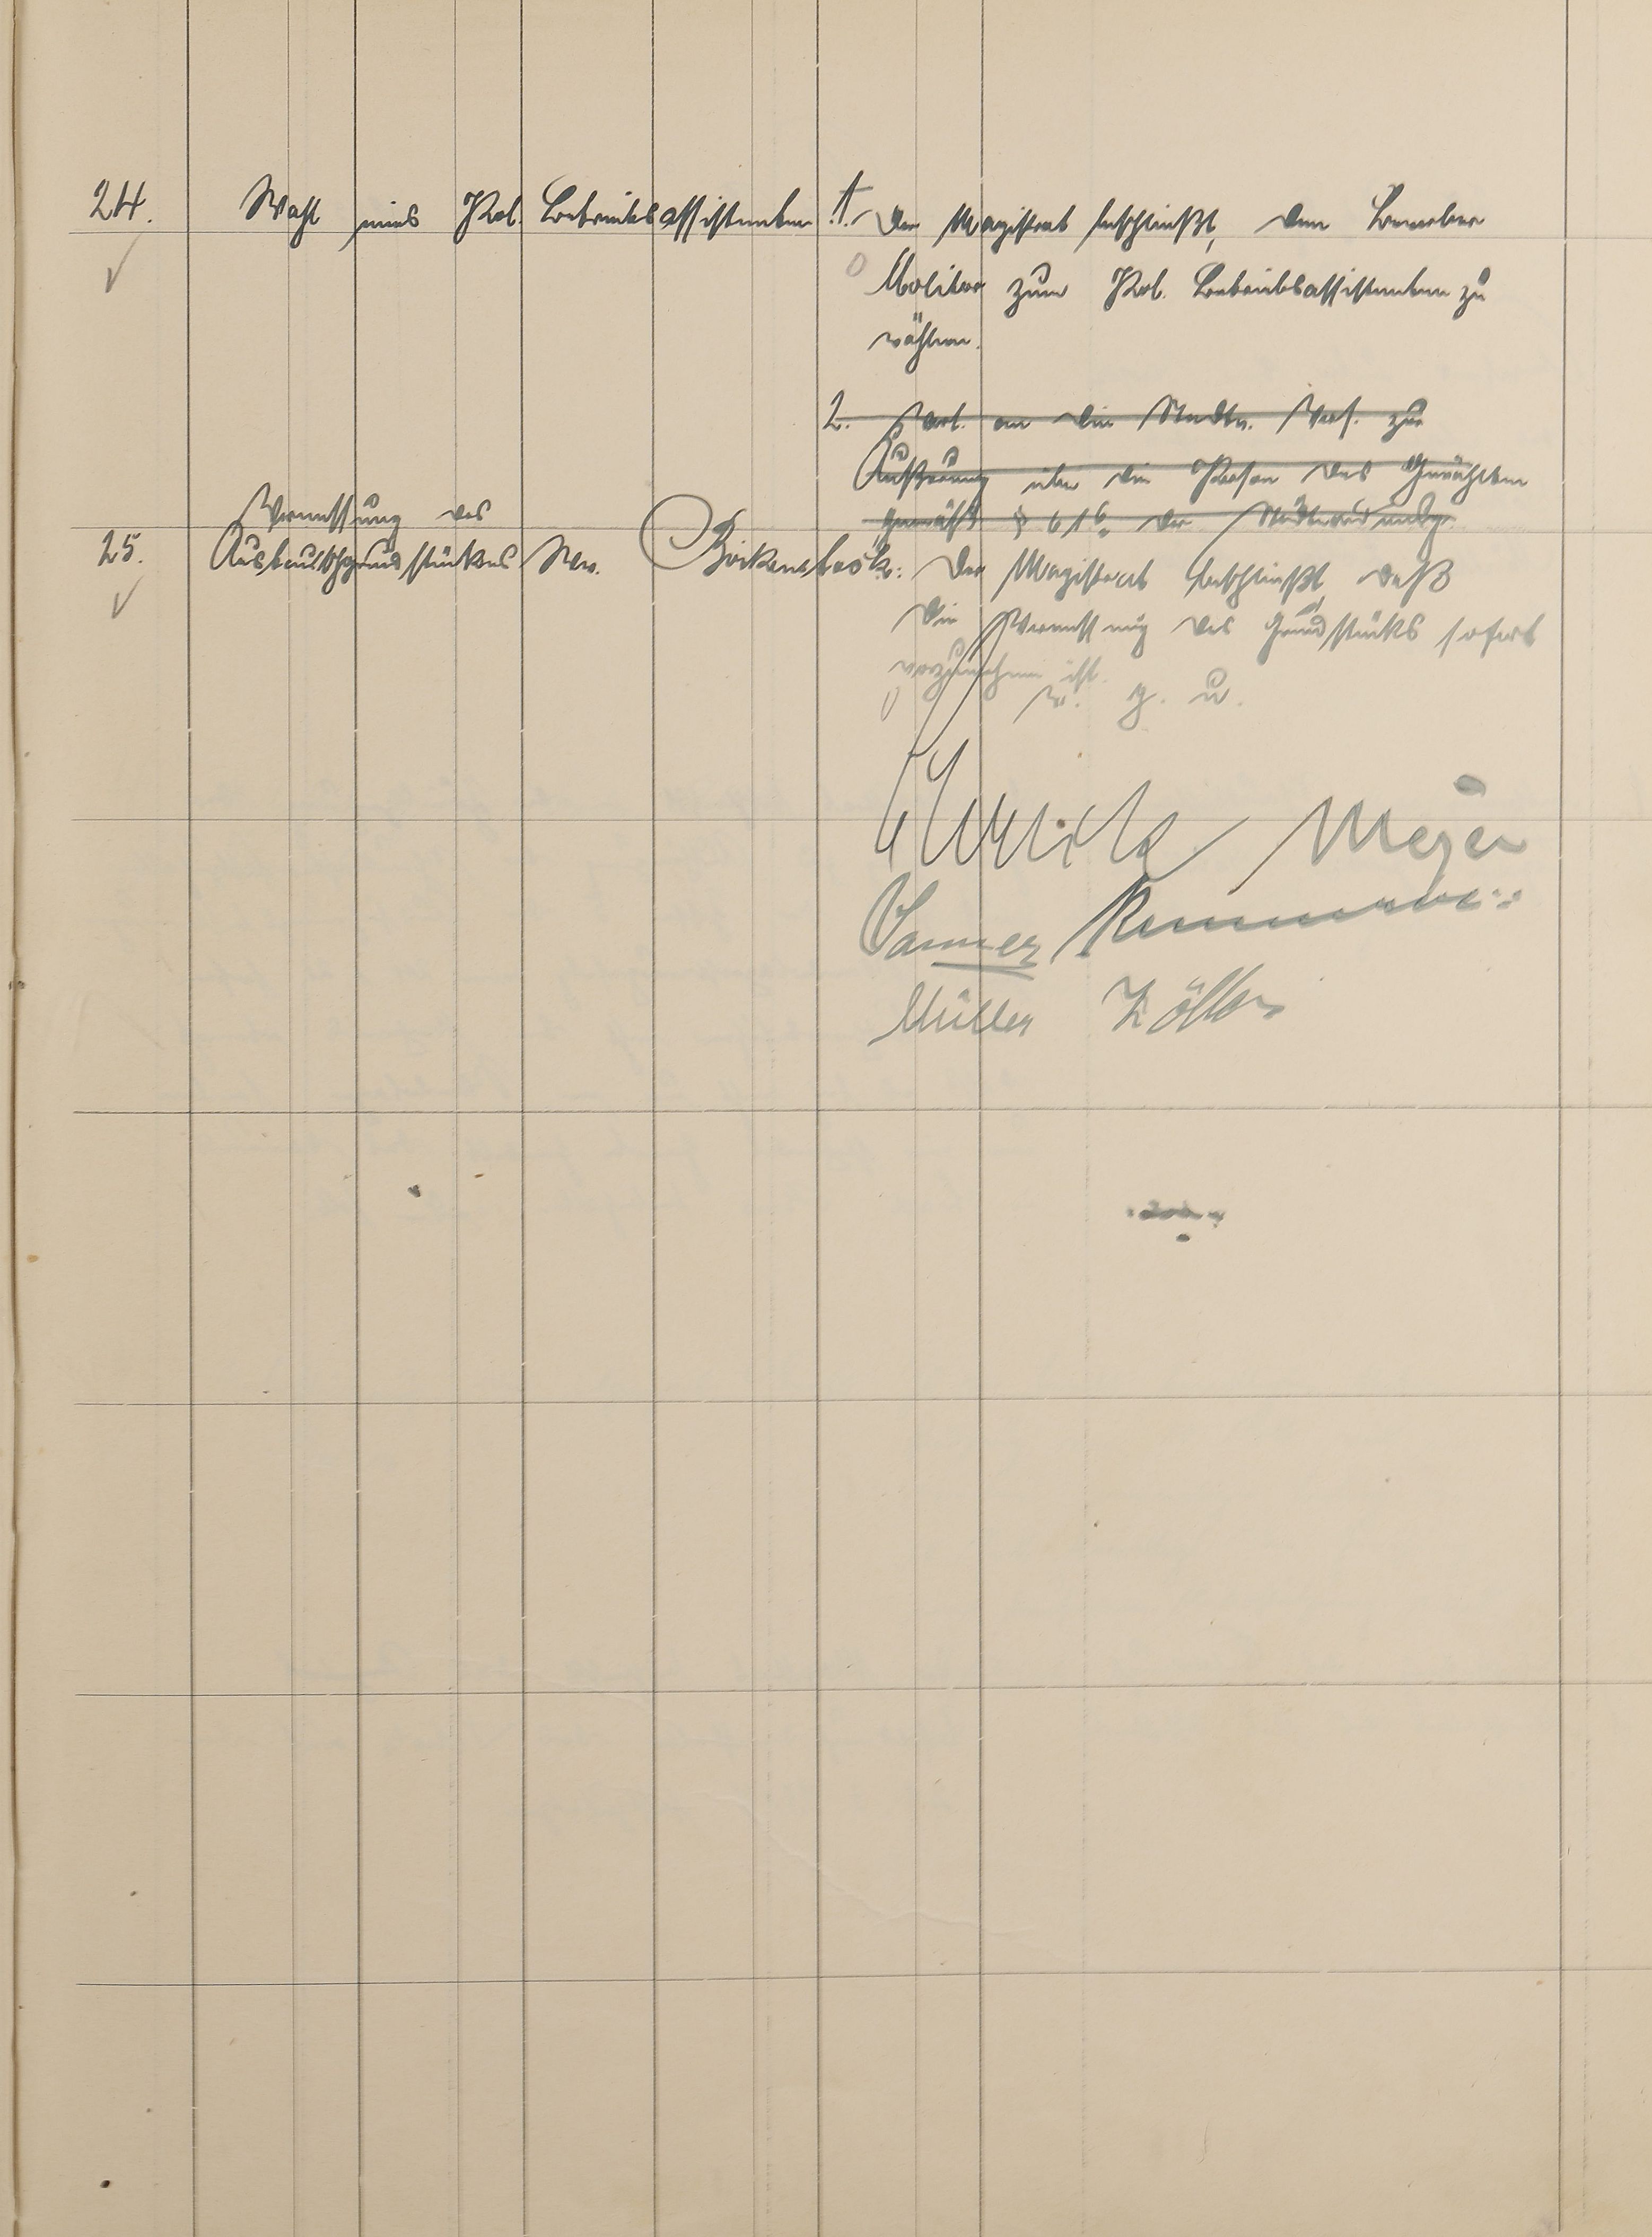 24. Wahl eines Pol. Betriebsassistenten
1. Der Magistrat beschließt, den Bewerber
Molitor zum Pol. Betriebsassistenten zu
wählen.
2. Vorl. an die Stadtv. Vers. zur
Äußerung über die Person des Gewählten
gemäß § 61 6 der Städteordnung.
Vermessung des
25. Austauschgrundstückes Ww. Birkenstock:
Der Magistrat beschließt, daß
die Vermessung des Grundstücks sofort
vorzunehmen ist.
v. g. u.
Meyer
Müller